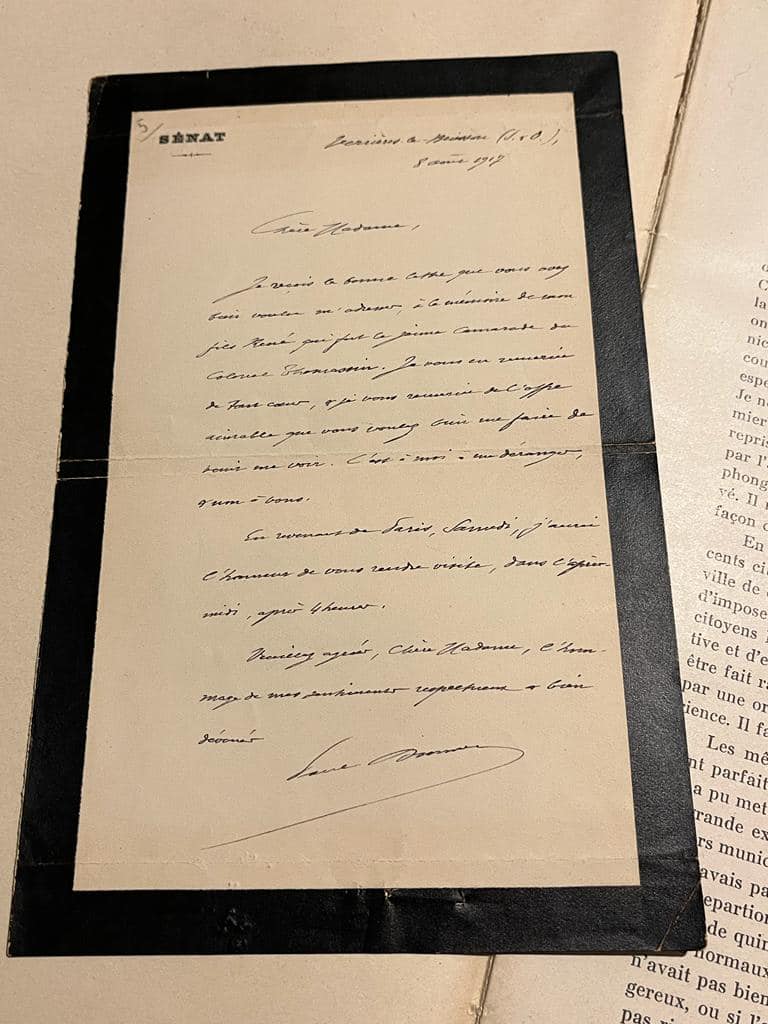 5/
SÉNAT
Verrières-le-Buisson (S.&O.),
8 août 1917
Chère Madame,
Je reçois la bonne lettre que vous avez
bien voulu m'adresser, à la mémoire de mon
fils René qui fut le jeune camarade du
Colonel Thomassin. Je vous en remercie
de tout cœur, & je vous remercie de l'offre
aimable que vous voulez bien me faire de
venir me voir. C'est à moi à me déranger,
& non à vous.
En revenant de Paris, Samedi, j'aurai
l'honneur de vous rendre visite, dans l'après-
midi, après 4 heures.
Veuillez agréer, Chère Madame, l'hom-
mage de mes sentiments respectueux & bien
dévoués
Paul Doumer
la
on
nic
cou
espé
Je n
mier
repris
par l'
phong
vé. Il
façon d
En
cents ci
ville de
d'impose
citoyens
tive et d'e
être fait ra
par une or
ience. Il fa
Les mê
nt parfait
a pu met
rande ex
rs munic
avais pa
epartion
de quin
normaux
n'avait pas bien
gereux, ou si l'a
pas